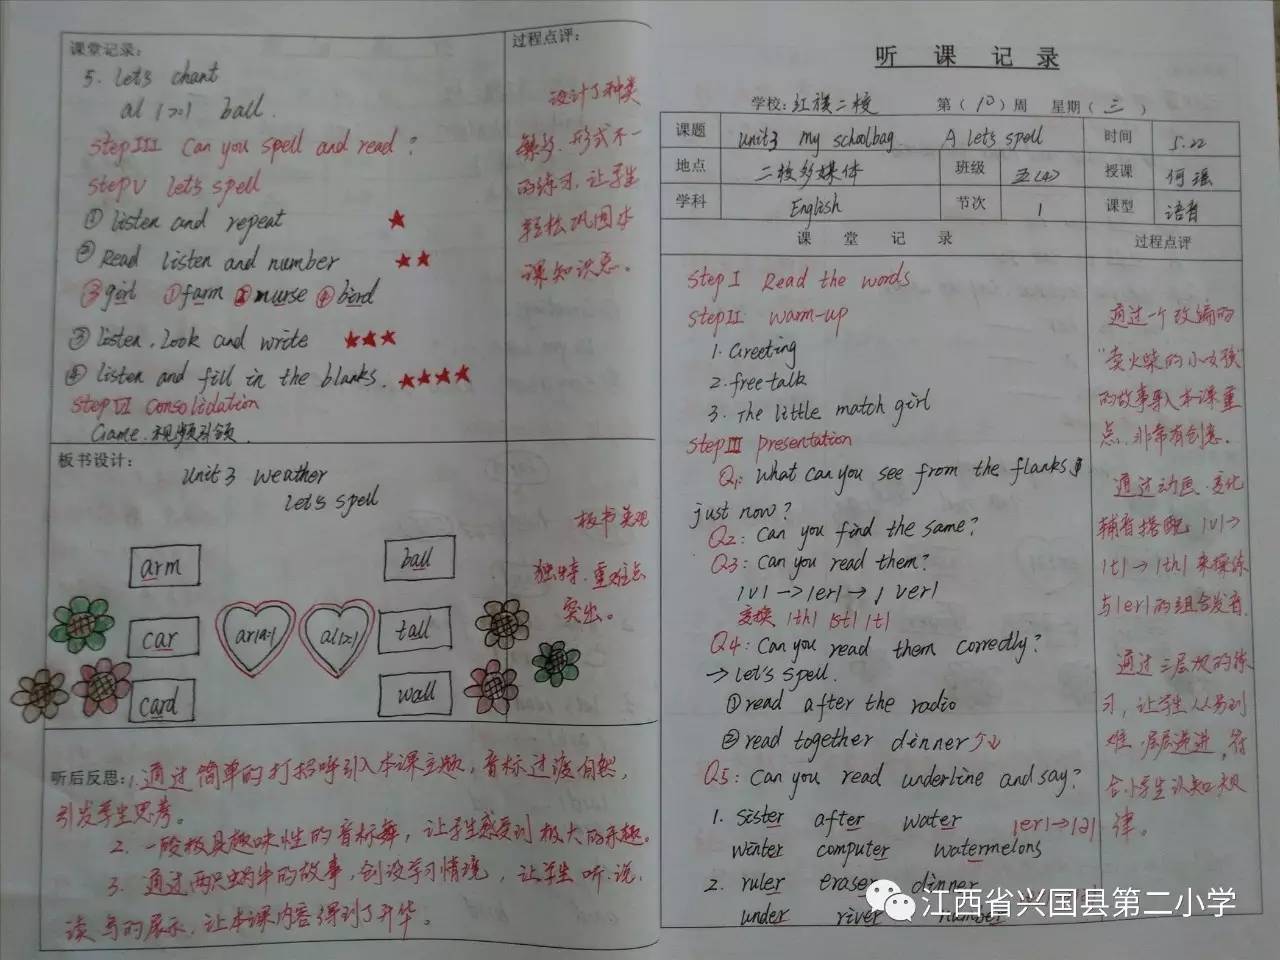 课堂记录：
5. let's chant
al ball.
Step III Can you spell and read?
Step V let's spell
① listen and repeat ★
② Read listen and number ★★
③ girl ① farm ② nurse ④ bird
③ listen, look and write ★★★
④ listen and fill in the blanks. ★★★★
Step VI Consolidation
Game. 视频引领.
过程点评：
设计了种类
繁多、形式不一
的练习，让学生
轻松巩固本
课知识点。
板书设计：
Unit 3 Weather
let's spell
arm
ball
car
tall
card
wall
板书美观
独特，重难点
突出。
听后反思：1. 通过简单的打招呼引入本课主题，音标过渡自然，
引发学生思考。
2. 一段极具趣味性的音标舞，让学生感受到极大的乐趣。
3. 通过两只蜗牛的故事，创设学习情境，让学生听、说、
读、写的展示，让本课内容得到了升华。
听 课 记 录
学校：红旗二校 第（10）周 星期（三）
课题 Unit3 My schoolbag A let's spell 时间 5.22
地点 二校多媒体 班级 五(4) 授课 何瑶
学科 English 节次 1 课型 语音
课 堂 记 录 过程点评
Step I Read the words
Step II warm-up
1. Greeting
2. free talk
3. The little match girl
Step III presentation
Q1: What can you see from the flanks
just now?
Q2: Can you find the same?
Q3: Can you read them?
|v| → |er| → | ver|
变换 |th| |st| |t|
Q4: Can you read them correctly?
→ let's spell.
① read after the radio
② read together dinner ↑↓
Q5: Can you read underline and say?
1. sister after water |er|→|ə|
winter computer watermelons
2. ruler eraser dinner
under river number
通过一个改编的
“卖火柴的小女孩”
的故事导入本课重
点，非常有创意.
通过动画、变化
辅音搭配，|v|→
|t|→|th| 来操练
与|er|的组合发音.
通过三层次的练
习，让学生从易到
难，层层递进，符
合小学生认知规
律。
江西省兴国县第二小学